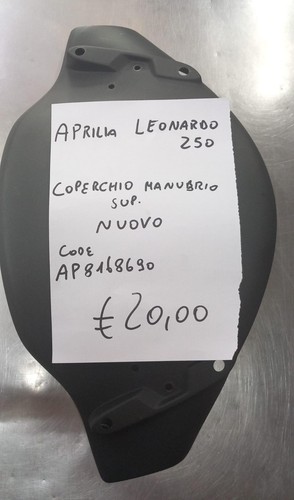 APRILIA LEONARDO
250
COPERCHIO MANUBRIO
SUP.
NUOVO
CODE
AP8168690
€20,00